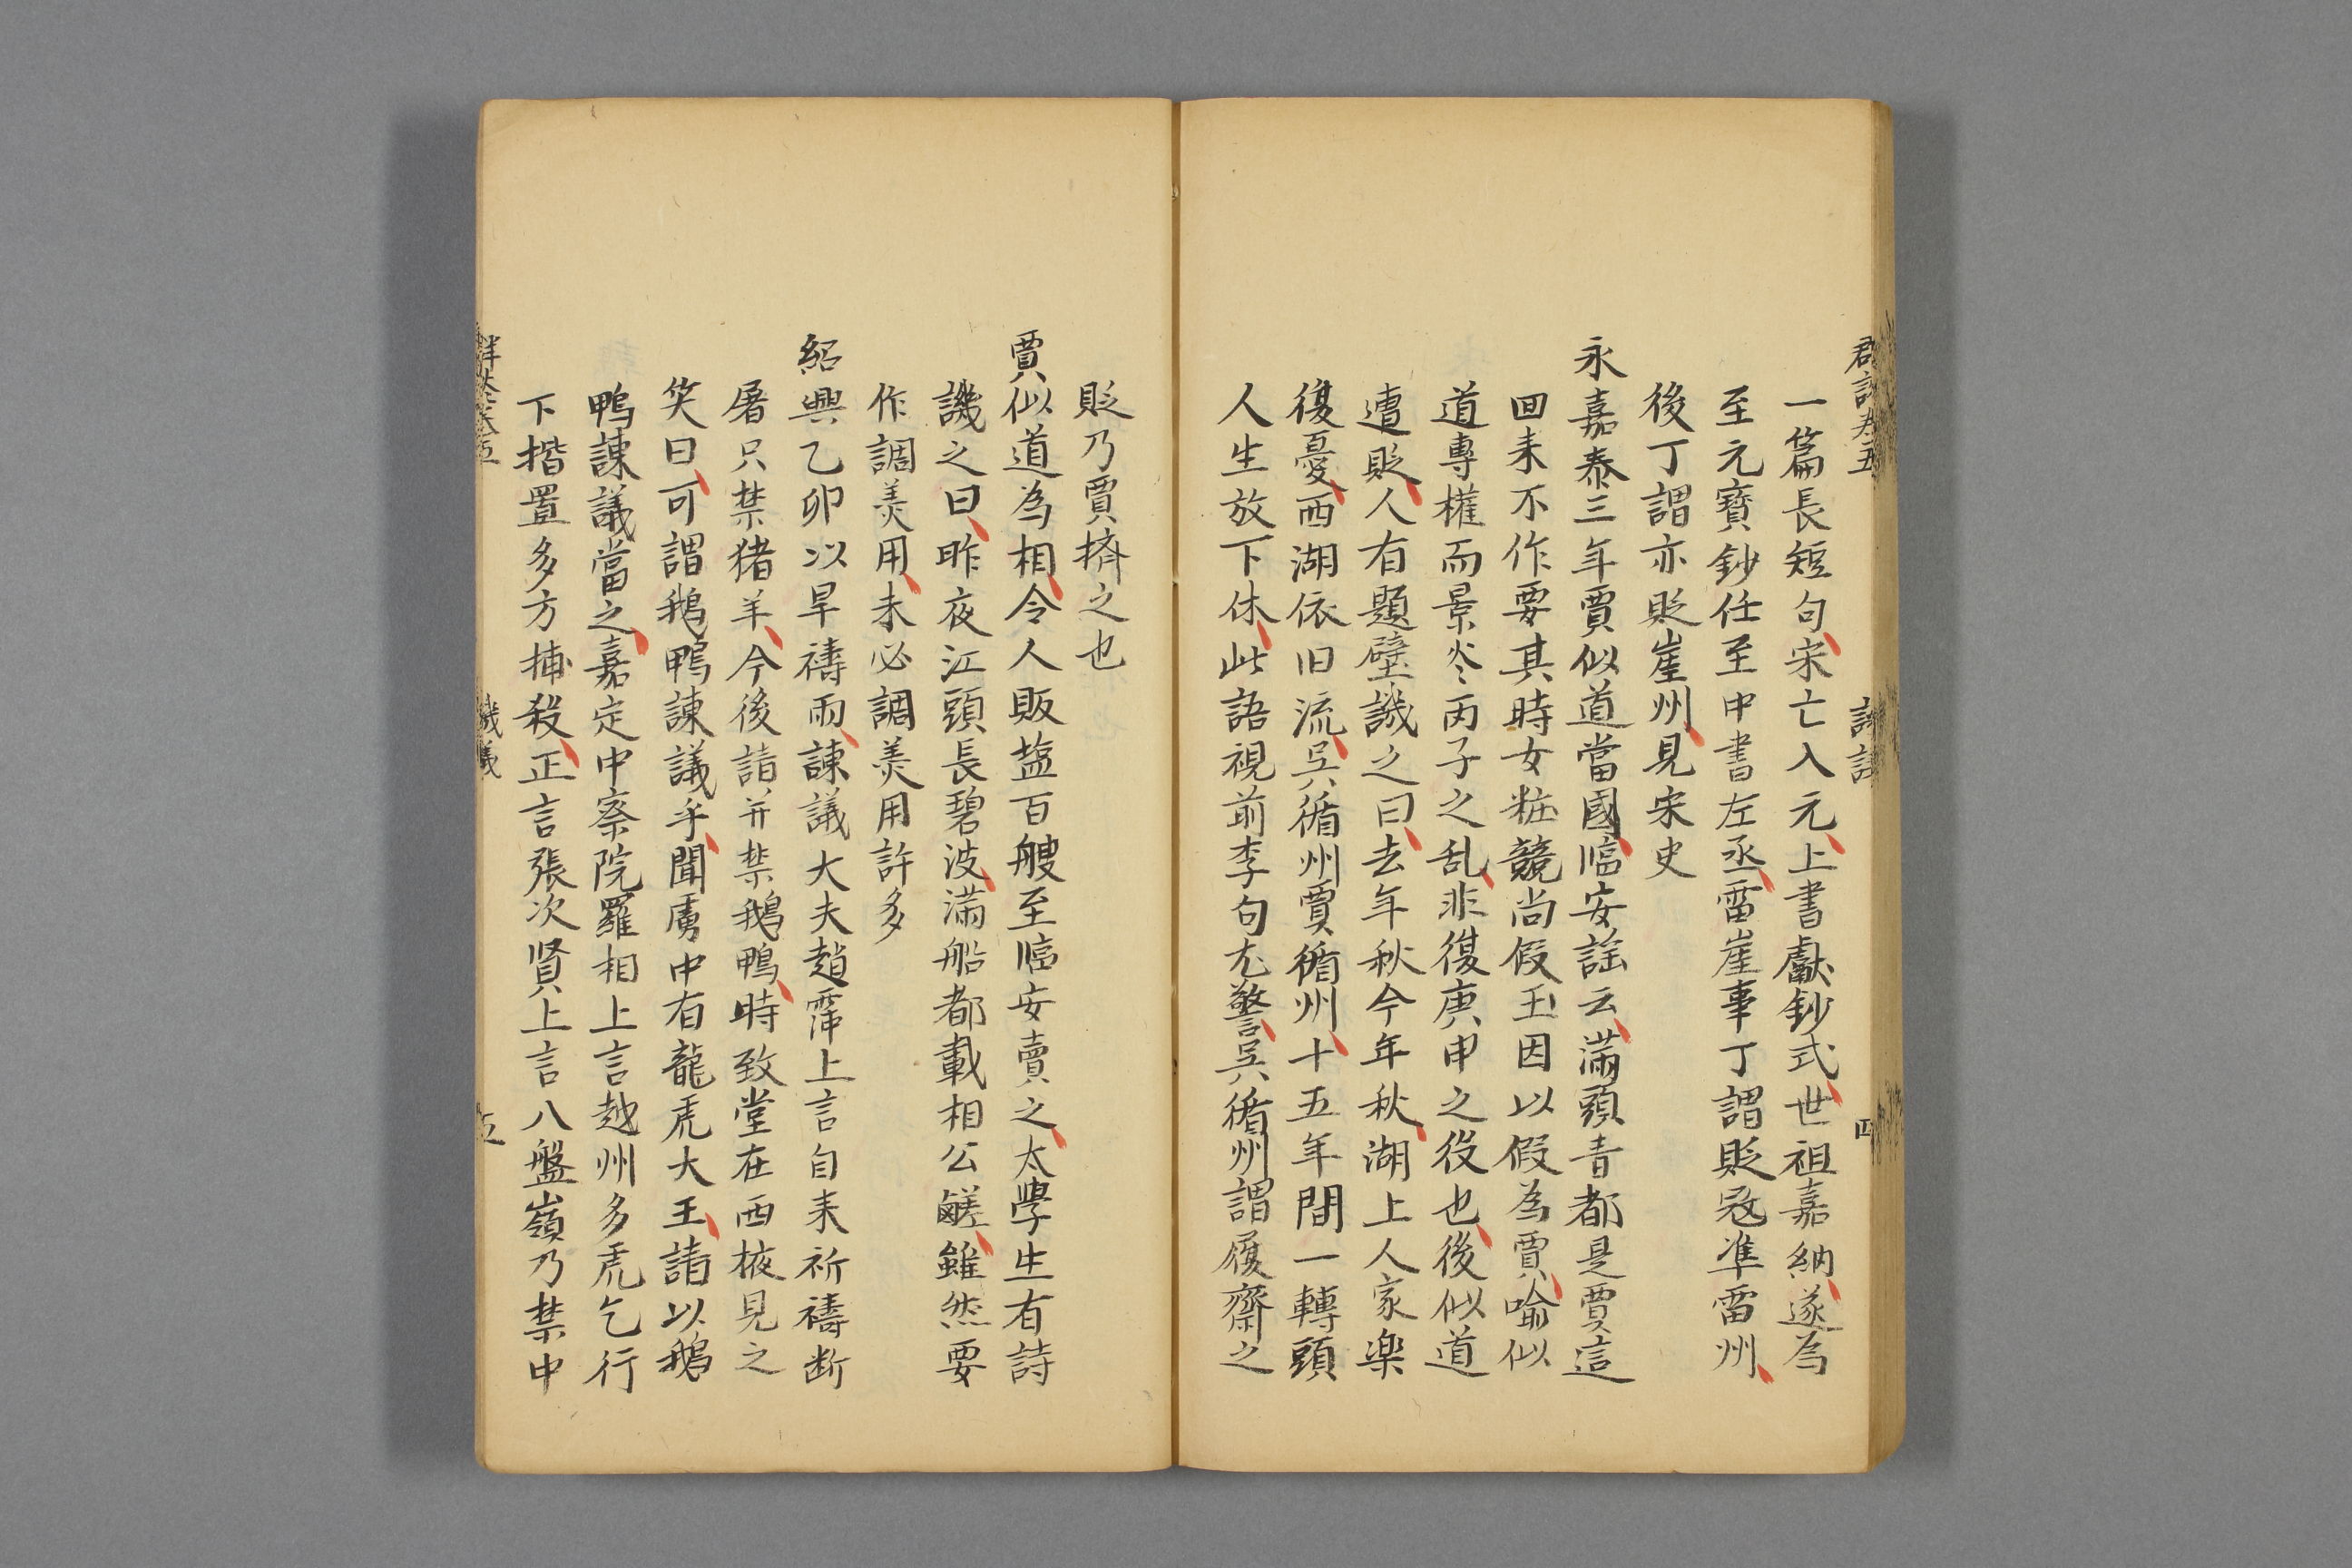 一篇長短句宋亡入元上書獻鈔式世祖嘉納遂為
至元寶鈔任至中書左丞雷崖事丁謂貶冦凖雷州
後丁謂亦貶崖州見宋史
永嘉泰三年賈似道當國臨安謡云滿頭青都是賈這
回来不作要其時女粧競尚假玉因以假為賈喻似
道專權而景炎丙子之乱非復庚申之役也後似道
遭貶人有題壁譏之曰去年秋今年秋湖上人家楽
復憂西湖依旧流吳循州賈循州十五年間一轉頭
人生放下休此語視前李句尤警吳循州謂履齋之
貶乃賈擠之也
賈似道為相令人販塩百艘至臨安賣之太學生有詩
譏之曰昨夜江頭長碧波滿船都載相公鹺雖然要
作調羮用未必調羮用許多
紹興乙卯以旱禱雨諫議大夫趙霈上言自来祈禱断
屠只禁猪羊今後請并禁鵝鴨時致堂在西掖見之
笑曰可謂鵝鴨諫議乎聞虜中有龍虎大王請以鵝
鴨諫議當之嘉定中察院羅相上言越州多虎乞行
下楷置多方捕殺正言張次賢上言八盤嶺乃禁中
五